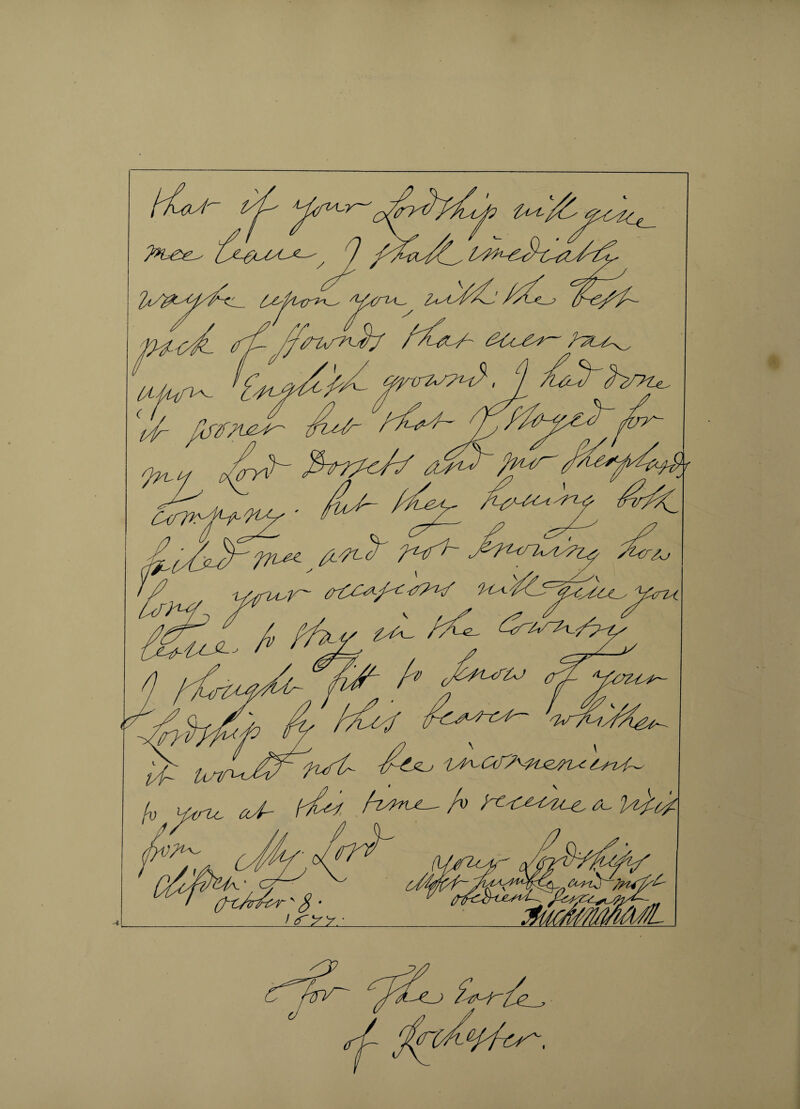 that if your Lordship will giue
mee leaue, I shall imediatly
wayte upon you, with the best
pack of ffownds that euer ran
upon English grownd. I had done
it sooner but that I stayed for
my Lord Dorsets and mr Shepards
company. but they hauing both
failed mee, and not knowing how
long your occasions will giue you
leaue to stay in the Cowntry
I thought fitt to know of your
Lordship by this bearer whither
it would not bee inconuenient
to you at this time to receiue a visit
from My Lord your Lordships
Clifden. Most humble and most
october 8. obedient seruant
1677. Buckingham
For The Earle
of Rochester.